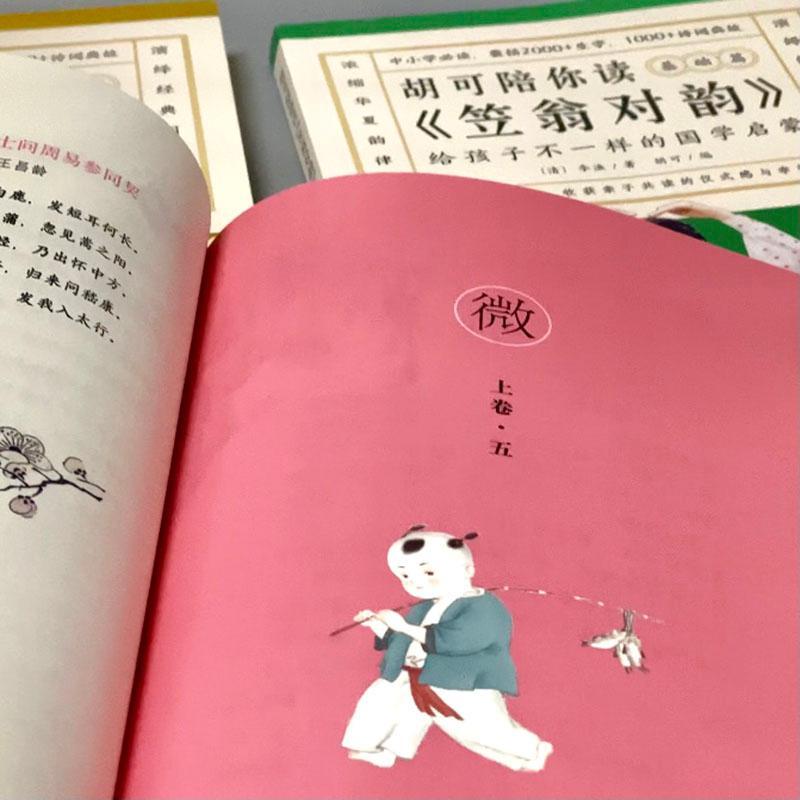 中小学必读，囊括2000+生字，1000+诗词典故
胡可陪你读
基础篇
《笠翁对韵》
给孩子不一样的国学启蒙
（清）李渔/著 胡可/编
收获亲子共读的仪式感与幸
浓缩华夏韵律
诗词典故
演绎经典
士问周易参同契
王昌龄
白鹿，发短耳何长。
蒲，忽见嵩之阳。
乃出怀中方。
归来问嵇康。
发我入太行。
微
上卷·五